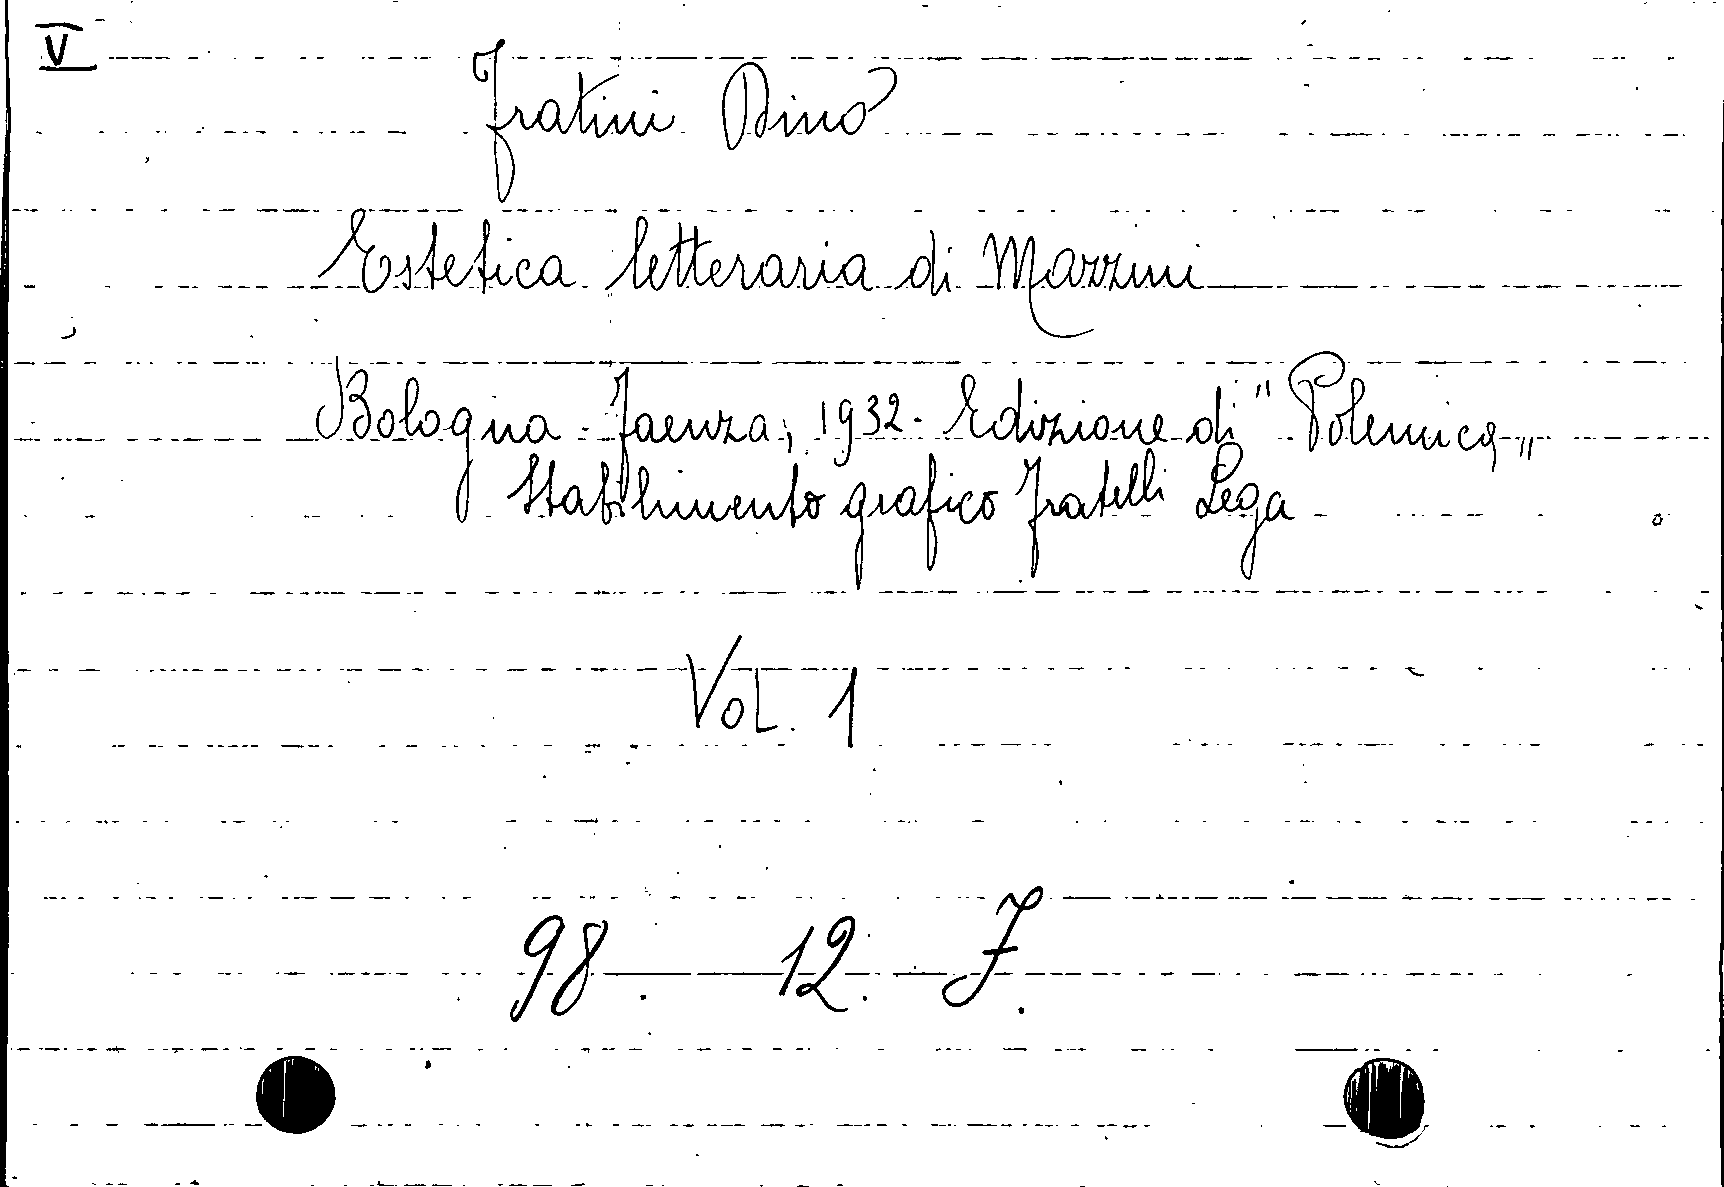 V
Fratini Dino
Estetica letteraria di Mazzini
Bologna - Faenza, 1932 - Edizione di "Polemica"
Stabilimento grafico Fratelli Lega
Vol. 1
98. 12. F.